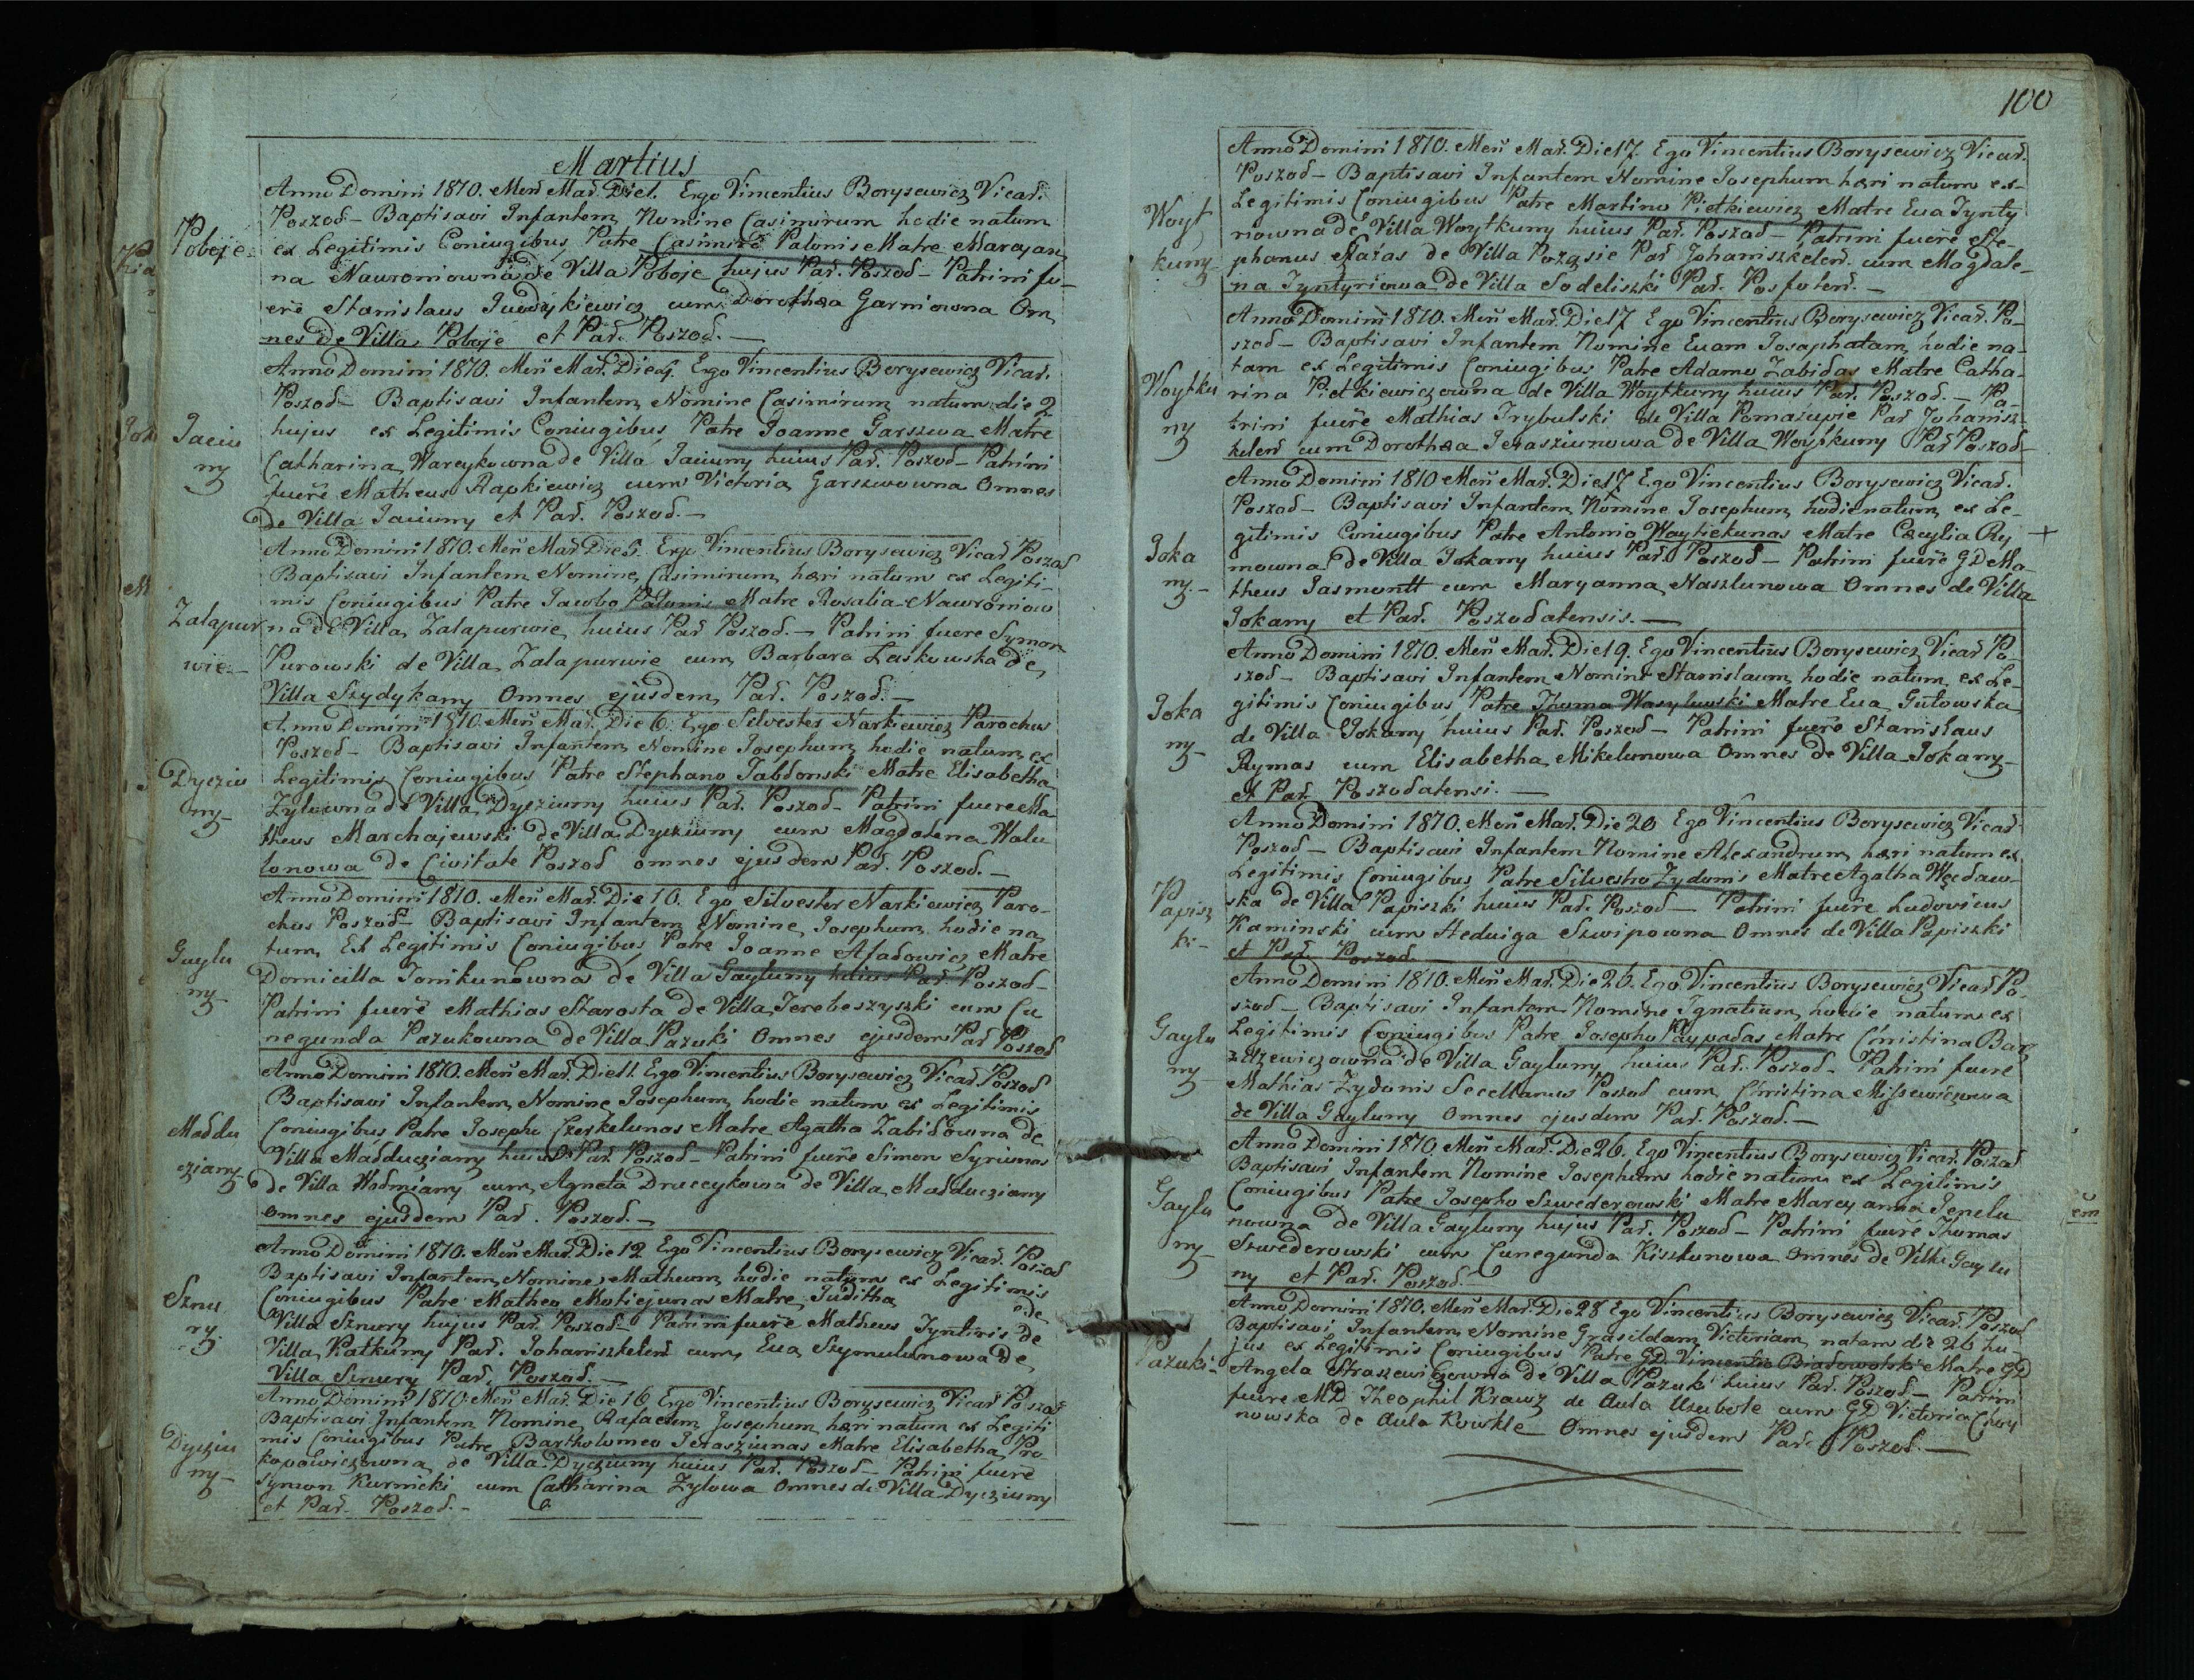 Martius
Poboje
Anno Domini 1810. Meñ Mar̃. Die 1. Ego Vincentius Borysewicz Vicar̃.
Poszod- Baptisavi Infantem Nomine Casimirum hodie natum
ex Legitimis Coniugibus Patre Casimiro Palonis Matre Maryan
na Nawroniowna de Villa Poboje hujus Par̃. Poszod- Patrini fu-
erẽ Stanislaus Juodykiewicz cum Dorothæa Garniowna Om
nes de Villa Poboje et Par̃. Poszod.-
Jaciu
ny
Anno Domini 1810. Meñ Mar̃. Die 4. Ego Vincentius Borysewicz Vicar̃.
Poszod- Baptisavi Infantem Nomine Casimirum natum die 2
hujus ex Legitimis Coniugibus Patre Joanne Garszwa Matre
Catharina Warcykowna de Villa Jaciuny huius Par̃. Poszod- Patrini
fuerẽ Matheus Rapkiewicz cum Victoria Garszwowna Omnes
de Villa Jaciuny et Par̃. Poszod.-
Zalapur
wie-
Anno Domini 1810. Meñ Mar̃ Die 5. Ego Vincentius Borysewicz Vicar̃ Poszod
Baptisavi Infantem Nomine Casimirum hæri natum ex Legiti-
mis Coniugibus Patre Jacobo Palonis Matre Rosalia Nawroniow
na de Villa Zalapurwie huius Par̃ Poszod.- Patrini fuere Symon
Purowski de Villa Zalapurwie cum Barbara Laskowska de
Villa Szydykany Omnes ejusdem Par̃. Poszod.-
Dyrziu
ny-
Anno Domini 1810. Meñ Mar̃. Die 6. Ego Silvester Narkiewicz Parochus
Poszod- Baptisavi Infantem Nomine Josephum hodie natum ex
Legitimis Coniugibus Patre Stephano Jabłonski Matre Elisabetha
Zylowna de Villa Dyrziuny huius Par̃. Poszod- Patrini fuere Ma
theus Marchajewski de Villa Dyrziuny cum Magdalena Walu
lonowa de Civitate Poszod omnes ejusdem Par̃. Poszod.-
Gaylu
ny-
Anno Domini 1810. Meñ Mar̃. Die 10. Ego Silvester Narkiewicz Paro-
chus Poszod- Baptisavi Infantem Nomine Josephum hodie na
tum Ex Legitimis Coniugibus Patre Joanne Matre
Domicilla Tomkunowna de Villa Gayluny huius Par̃. Poszod-
Patrini fuerẽ Mathias Starosta de Villa Jereboszyszki cum Cu
negunda Pazukowna de Villa Pazuki Omnes ejusdem Par̃ Poszod
Maddu
cziany
Anno Domini 1810. Meñ Mar̃. Die 11. Ego Vincentius Borysewicz Vicar̃ Poszod
Baptisavi Infantem Nomine Josephum hodie natum ex Legitimis
Coniugibus Patre Josepho Czeskelunas Matre Agatha Zabidowna de
Villa Madducziany huius Par̃ Poszod- Patrini fuerẽ Simon Syriunas
de Villa Wodmiany cum Agneta Druccykowa de Villa Madducziany
omnes ejusdem Par̃. Poszod.-
Sznu
ry.
Anno Domini 1810. Meñ Mar̃. Die 12 Ego Vincentius Borysewicz Vicar̃. Poszod
Baptisavi Infantem Nomine Matheum hodie natum ex Legitimis
Coniugibus Patre Matheo Motiejunas Matre Juditha de
Villa Sznury hujus Par̃ Poszod- Patrini fuerẽ Matheus Jyntiris de
Villa Katkuny Par̃. Johaniszkelens̃ cum Eva Szymulunowa de
Villa Sznury Par̃. Poszod.-
Dyrziu
ny-
Anno Domini 1810. Meñ Mar̃. Die 16 Ego Vincentius Borysewicz Vicar̃ Poszod
Baptisavi Infantem Nomine Rafaelem Josephum hæri natum ex Legiti
mis Coniugibus Patre Bartholomeo Jeraziunas Matre Elisabetha Pro
kopowiczowna de Villa Dyrziuny huius Par̃. Poszod- Patrini fuerẽ
Symon Kurnicki cum Catharina Zylowa Omnes de Villa Dyrziuny
et Par̃. Poszod.-
100
Woyt
kuny-
Anno Domini 1810. Meñ Mar̃. Die 17. Ego Vincentius Borysewicz Vicar̃.
Poszod- Baptisavi Infantem Nomine Josephum hæri natum ex-
Legitimis Coniugibus Patre Martino Pietkiewicz Matre Eva Jynty
nowna de Villa Woytkuny huius Par̃. Poszod- Patrini fuerẽ Ste-
phanus de Villa Pozasie Par̃ Johaniszkelens̃. cum Magdale-
na Jyntyriowa de Villa Sodeliszki Par̃. Posfolens̃.-
Woytku
ny
Anno Domini 1810. Meñ Mar̃. Die 17 Ego Vincentius Borysewicz Vicar̃. Po-
szod- Baptisavi Infantem Nomine Evam Josaphatam hodie na-
tam ex Legitimis Coniugibus Patre Adamo Zabidas Matre Catha-
rina Pietkiewiczowna de Villa Woytkuny huius Par̃. Poszod.- Pa-
trini fuerẽ Mathias Trybulski de Villa Pomazupie Par̃ Johanisz-
kelens̃ cum Dorothæa Jeraszunowa de Villa Woytkuny Par̃ Poszod-
Joka
ny-
Anno Domini 1810 Meñ Mar̃. Die 17 Ego Vincentius Borysewicz Vicar̃.
Poszod- Baptisavi Infantem Nomine Josephum hodie natum ex Le-
gitimis Coniugibus Patre Antonio Waytiekunas Matre Cæcylia Ry +
mowna de Villa Jokany huius Par̃. Poszod- Patrini fuerẽ GD Ma-
theus Jasmontt cum Maryanna Naszlunowa Omnes de Villa
Jokany et Par̃. Poszodatensis.-
Joka
ny-
Anno Domini 1810. Meñ Mar̃. Die 19. Ego Vincentius Borysewicz Vicar̃ Po-
szod- Baptisavi Infantem Nomine Stanislaum hodie natum ex Le-
gitimis Coniugibus Patre Thoma Wasylewski Matre Eva Gutowska
de Villa Jokany huius Par̃. Poszod- Patrini fuerẽ Stanislaus
Rymas cum Elisabetha Mikelunowa Omnes de Villa Jokany-
et Par̃. Poszodatensi.-
Papisz
ki-
Anno Domini 1810. Meñ Mar̃. Die 20 Ego Vincentius Borysewicz Vicar̃
Poszod- Baptisavi Infantem Nomine Alexandrum hæri natum ex
Legitimis Coniugibus Patre Silvestro Zydonis Matre Agatha
ska de Villa Papiszki huius Par̃. Poszod- Patrini fuerẽ Ludovicus
Kaminski cum Heduiga Szwipowna Omnes de Villa Papiszki
et Par̃. Poszod.
Gaylu
ny-
Anno Domini 1810. Meñ Mar̃. Die 26. Ego Vincentius Borysewicz Vicar̃ Po-
szod- Baptisavi Infantem Nomine Ignatium hodie natum ex
Legitimis Coniugibus Patre Josepho Matre Christina Bar
de Villa Gayluny huius Par̃. Poszod- Patrini fuere
Mathias Zydonis Secellanus Poszod cum Christina
de Villa Gayluny Omnes ejusdem Par̃. Poszod.-
Gaylu
ny-
Anno Domini 1810. Meñ Mar̃. Die 26. Ego Vincentius Borysewicz Vicar̃. Poszod
Baptisavi Infantem Nomine Josephum hodie natum ex Legitimis
Coniugibus Patre Josepho Szwederowski Matre Maryanna Jenelu
nowna de Villa Gayluny hujus Par̃. Poszod- Patrini fuerẽ Thomas
Szwederowski cum Cunegunda Kisztunowa Omnes de Villa Gaylu
ny et Par̃. Poszod.-
Pazuki-
Anno Domini 1810. Meñ Mar̃. Die 28 Ego Vincentius Borysewicz Vicar̃. Poszod
Baptisavi Infantem Nomine Grasildam Victoriam natam die 26 hu-
jus ex Legitimis Coniugibus Patre GD. Vincentio Matre GD
Angela Straszewiczowna de Villa Pazuki huius Par̃. Poszod.- Patrini
fuere MD Theophil Krawz de Aula cum GD Victoria
nowska de Aula Kowkle Omnes ejusdem Par̃. Poszod.-